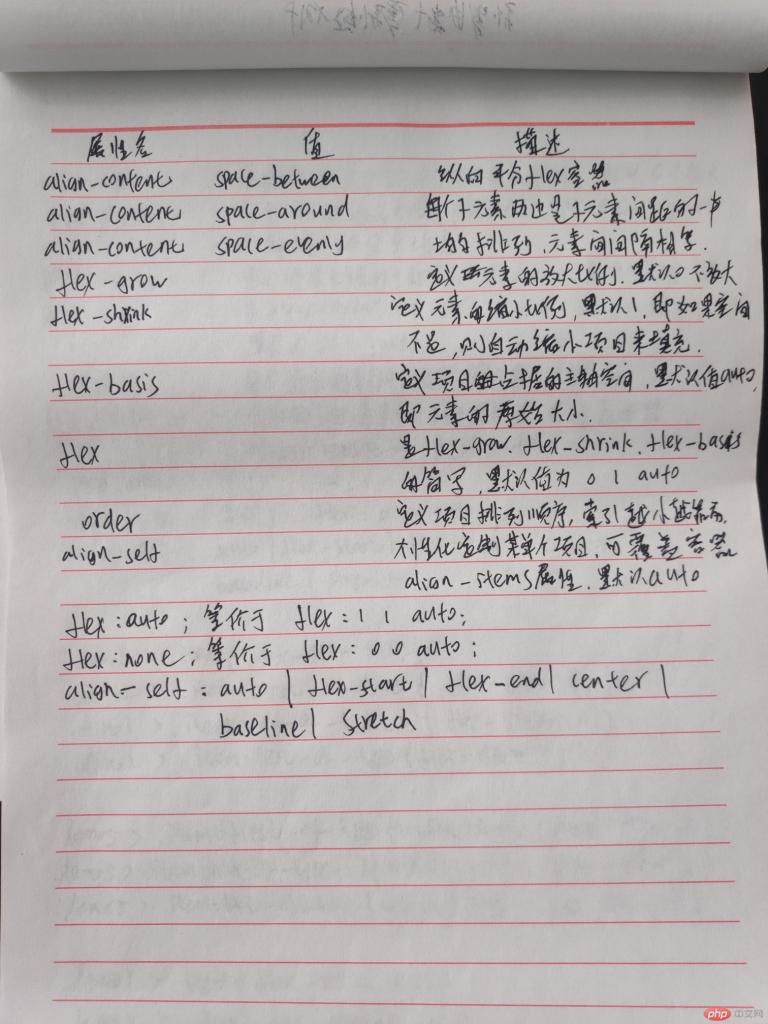 属性名 值 描述
align-content space-between 纵向平分flex容器
align-content space-around 每个子元素两边是子元素间距的一半
align-content space-evenly 均匀排列,元素间间隔相等.
flex-grow 定义元素的放大比例.默认0不放大
flex-shrink 定义元素的缩小比例,默认1,即如果空间
不足,则自动缩小项目来填充.
flex-basis 定义项目占据的主轴空间,默认值auto,
即元素的原始大小.
flex 是flex-grow.flex-shrink.flex-basis
的简写,默认值为 0 1 auto
order 定义项目排列顺序,索引越小越靠前.
align-self 个性化定制某单个项目,可覆盖容器
align-items属性.默认auto
flex:auto;等价于 flex:1 1 auto;
flex:none;等价于 flex:0 0 auto;
align-self:auto | flex-start | flex-end | center |
baseline | stretch
php 中文网